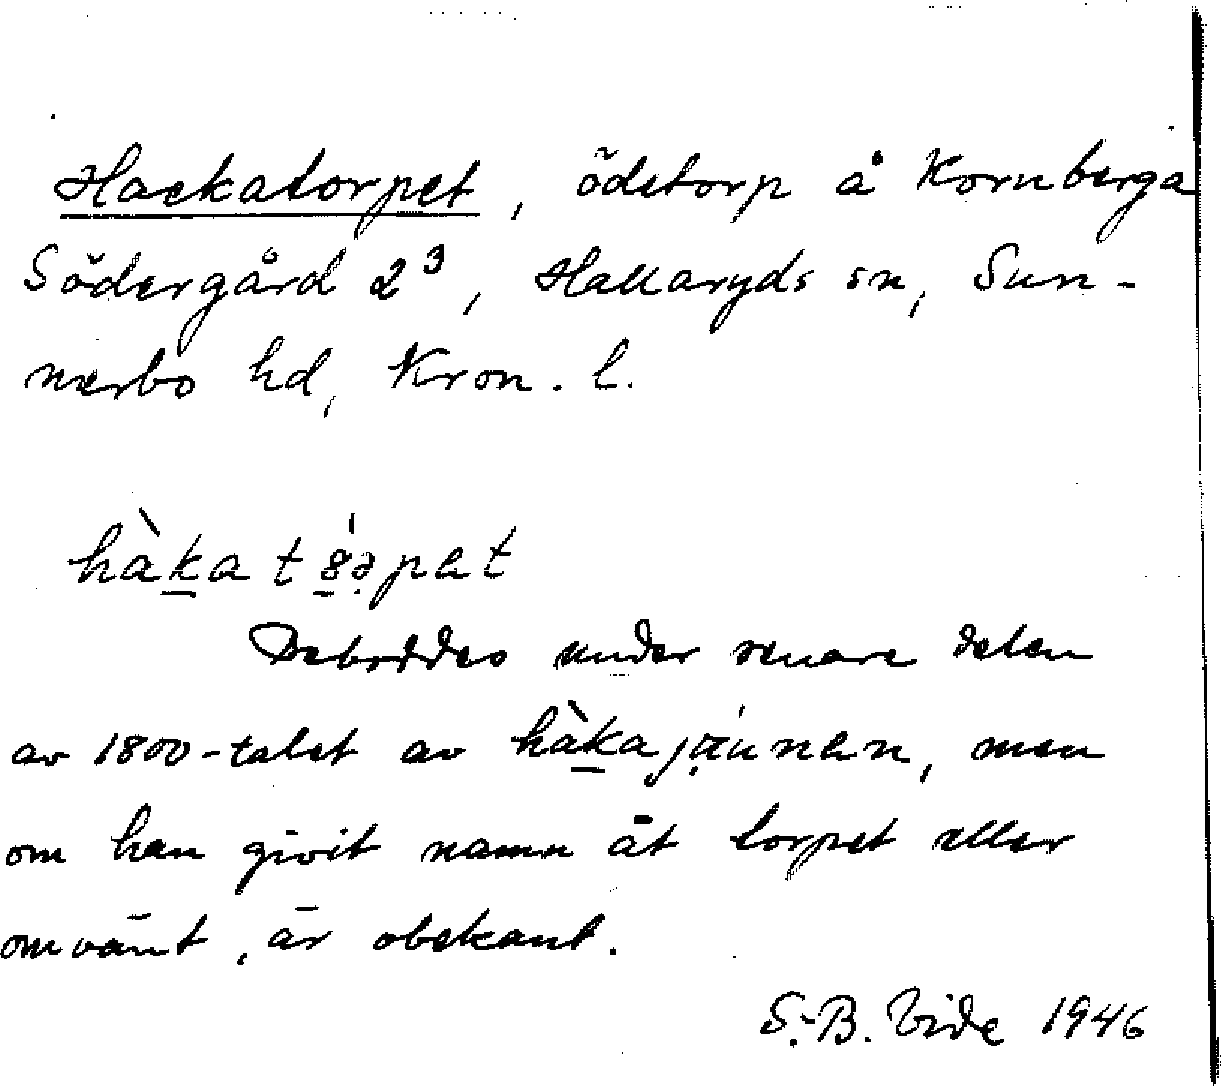 Hackatorpet, ödetorp å Kornberga
Södergård 2³, Hallaryds sn, Sun-
nerbo hd, Kron. l.
hàka tꞛ́əpet
Beboddes under senare delen
av 1800-talet av hàkajäunen, men
om han givit namn åt torpet eller
omvänt, är obekant.
S.-B. Vide 1946